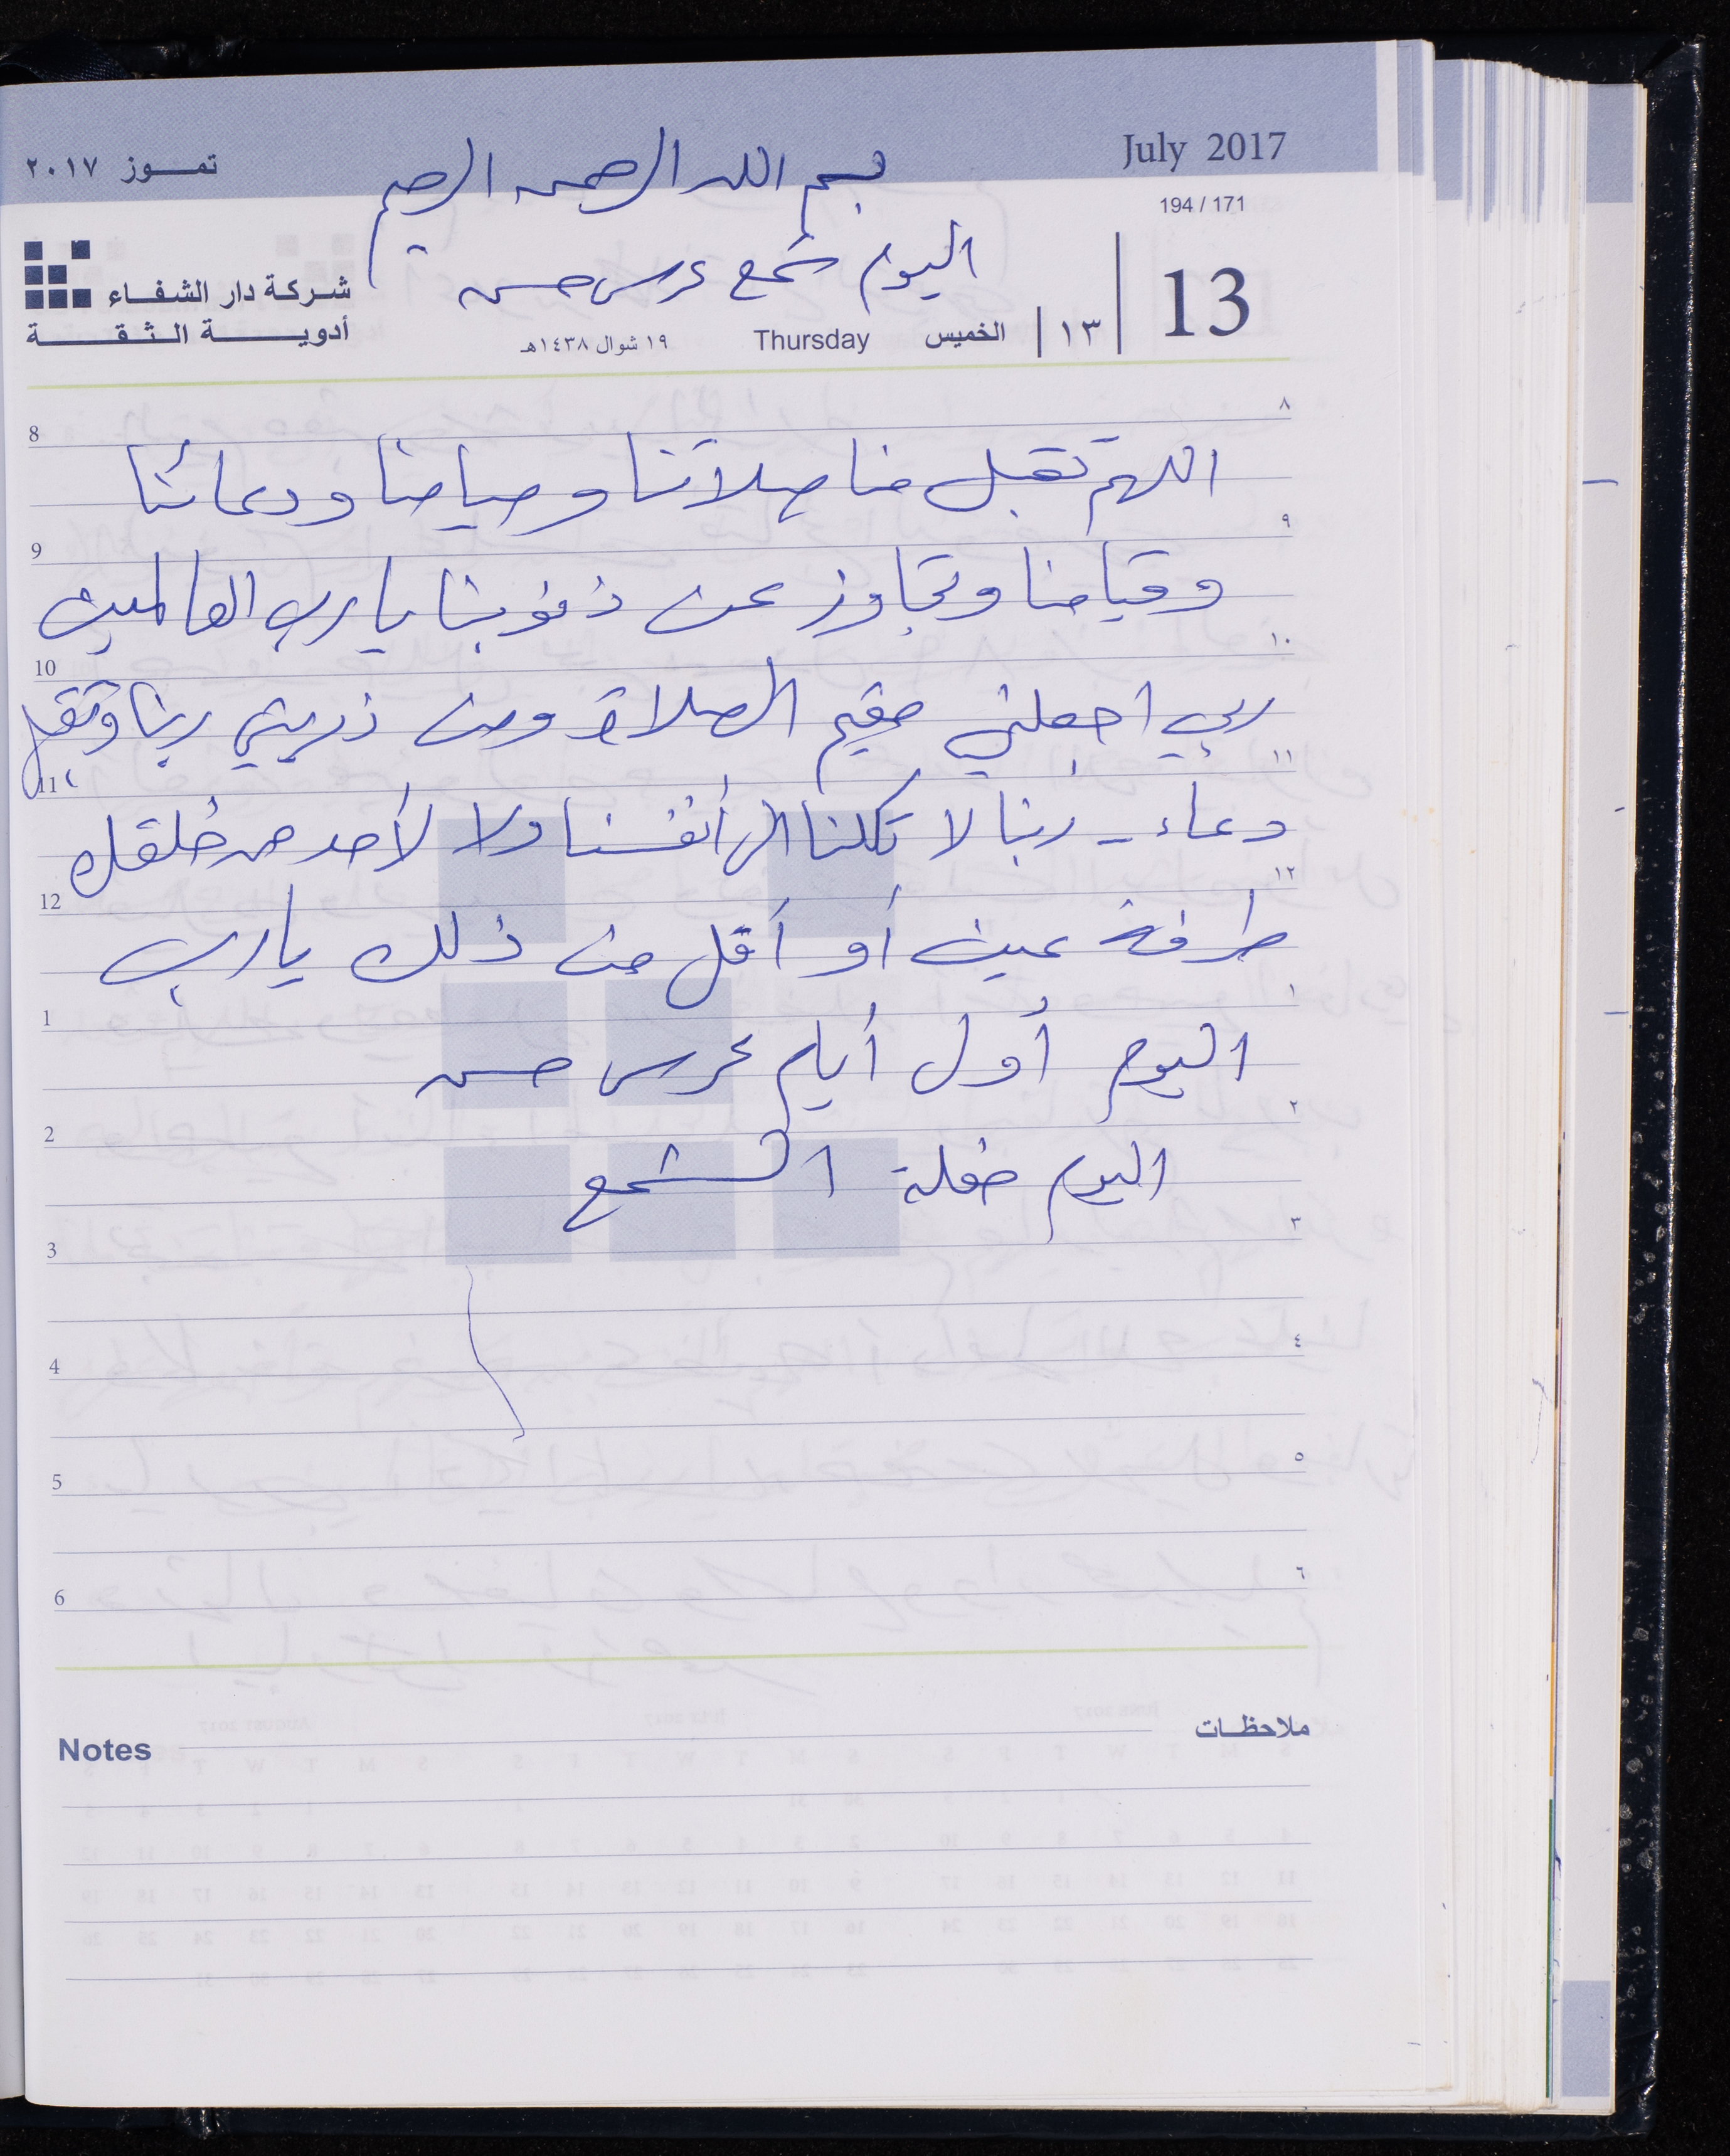 July 2017
تمـــوز ٢٠١٧
بسم الله الرحمن الرحيم
194 / 171
اليوم شمع عرس حسن
13
١٣
الخميس
Thursday
١٩ شوال ١٤٣٨هـ
شركة دار الشفاء
أدويـــة الـثـقـــة
8 ٨
اللهم تقبل منا صلاتنا وصيامنا ودعائنا
9 ٩
وقيامنا وتجاوز عن ذنوبنا يا رب العالمين
10 ١٠
ربي اجعلني مقيم الصلاة ومن ذريتي ربنا وتقبل
11 ١١
دعاء - ربنا لا تكلنا الى أنفسنا ولا لأحد من خلقك
12 ١٢
طرفة عين أو أقل من ذلك يارب
1 ١
اليوم أول أيام عرس حسن
2 ٢
اليوم حفلة الشمع
3 ٣
4 ٤
5 ٥
6 ٦
Notes
ملاحظــات